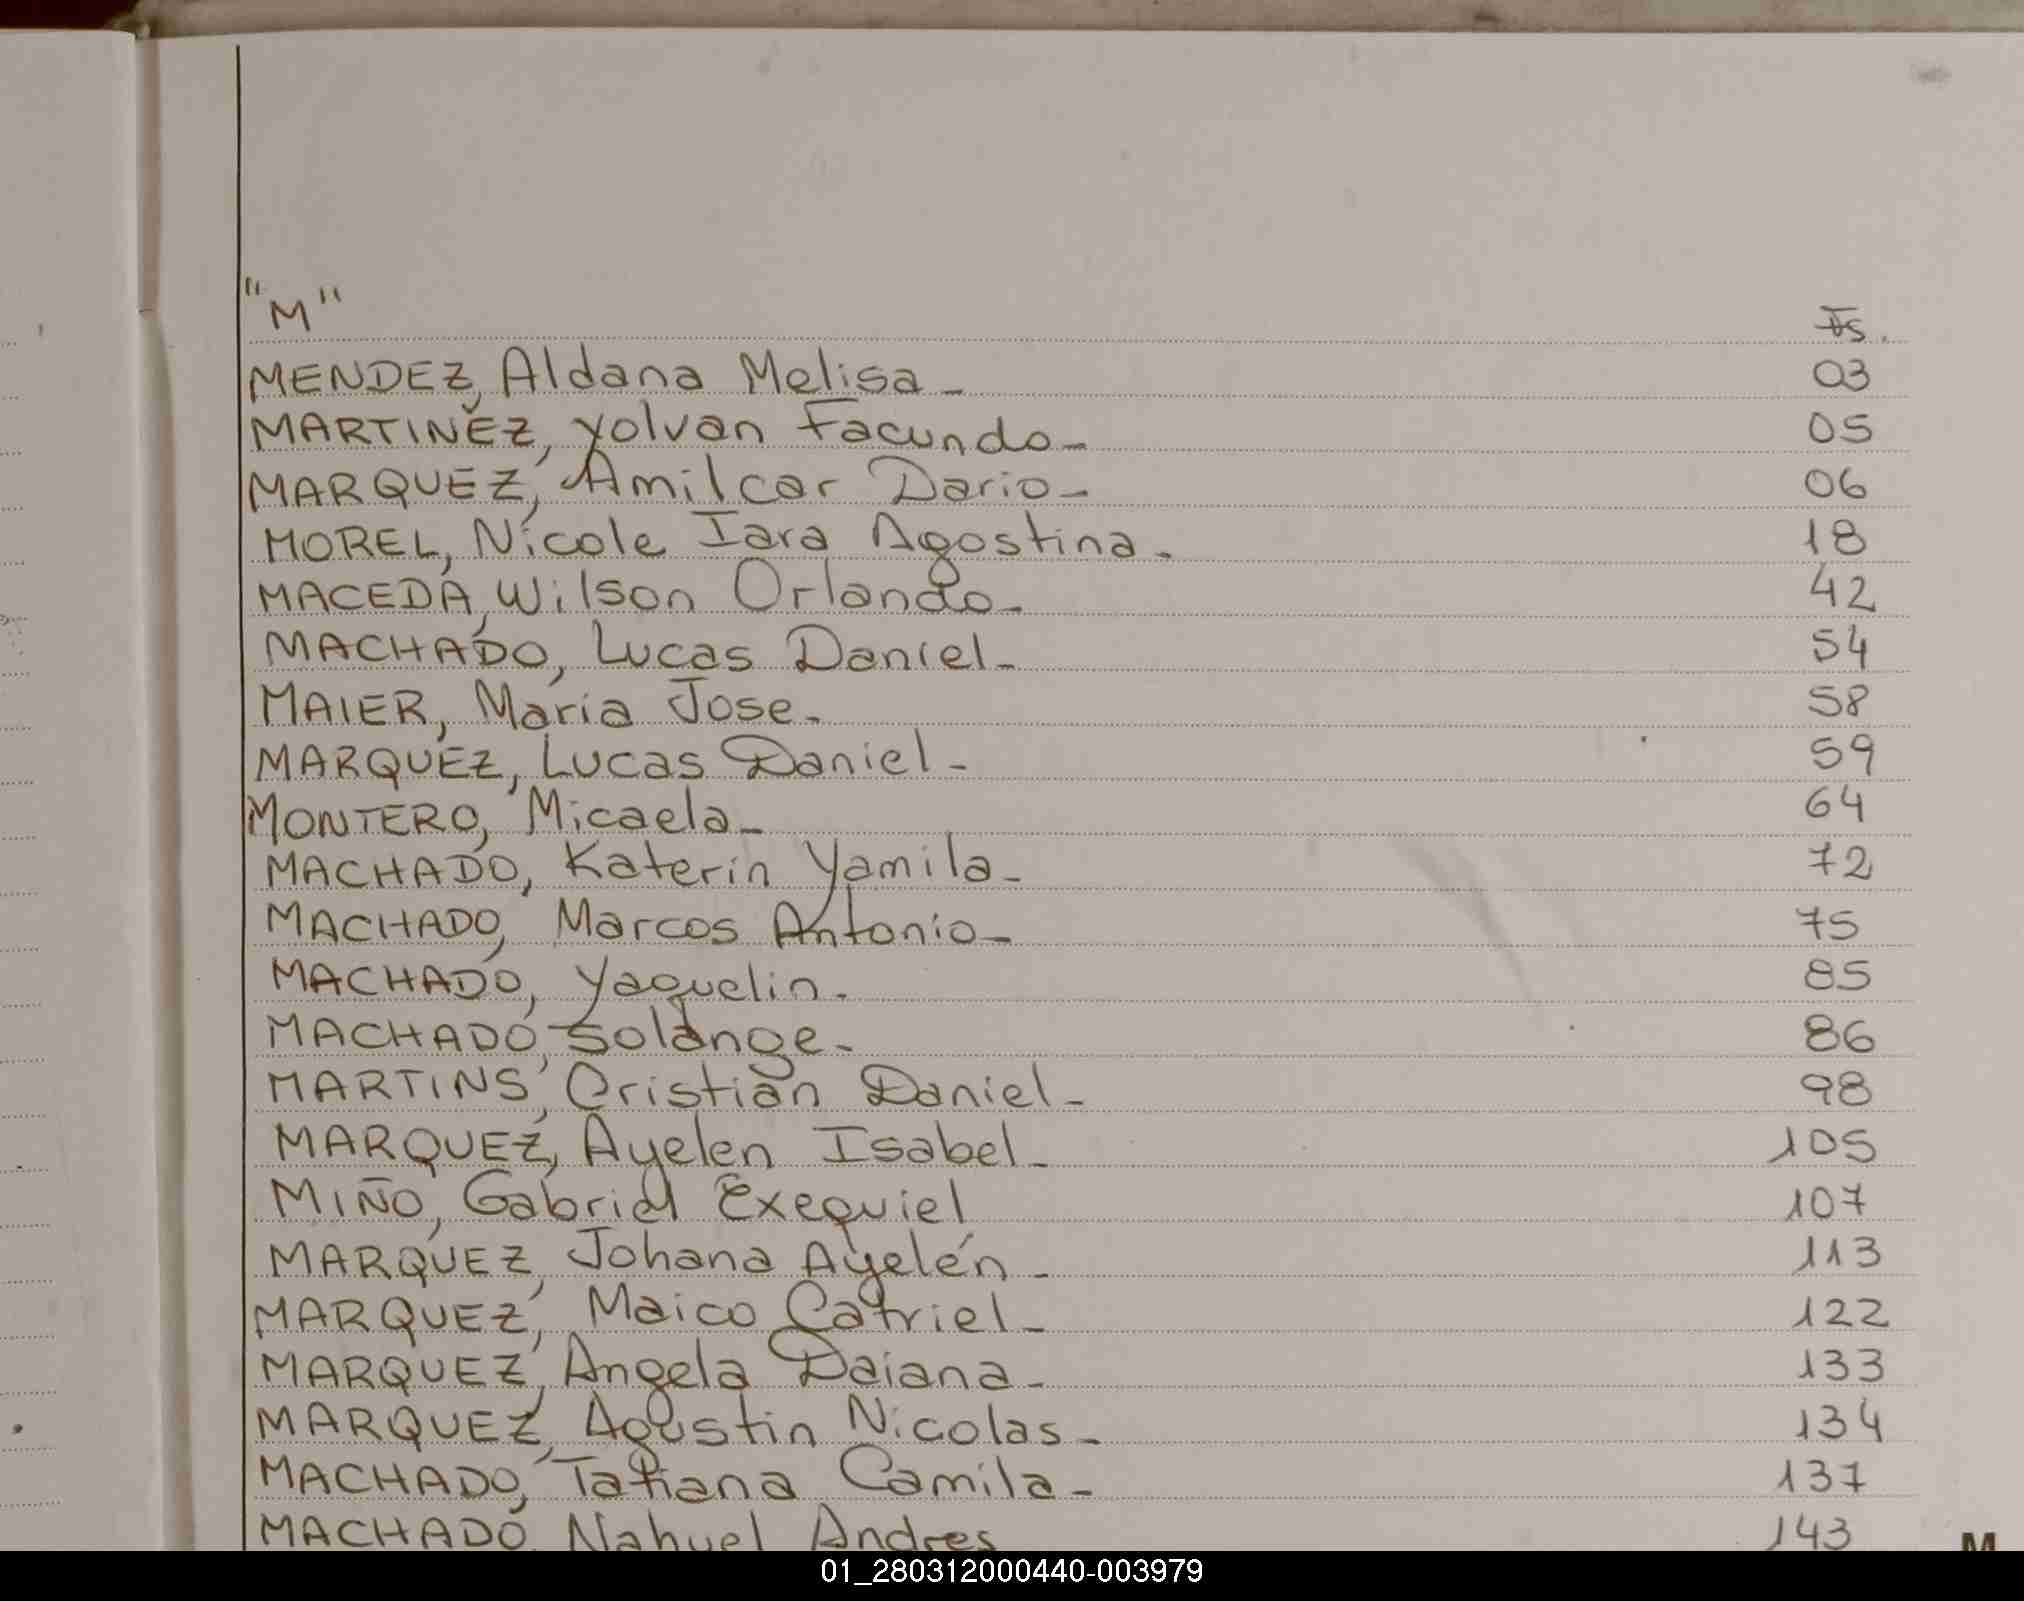 "M" Fs.
MENDEZ, Aldana Melisa - 03
MARTINEZ, Yolvan Facundo - 05
MARQUEZ, Amilcar Dario - 06
MOREL, Nicole Iara Agostina - 18
MACEDA, Wilson Orlando - 42
MACHADO, Lucas Daniel - 54
MAIER, Maria Jose - 58
MARQUEZ, Lucas Daniel - 59
MONTERO, Micaela - 64
MACHADO, Katerin Yamila - 72
MACHADO, Marcos Antonio - 75
MACHADO, Yaquelin - 85
MACHADO, Solange - 86
MARTINS, Cristian Daniel - 98
MARQUEZ, Ayelen Isabel - 105
MIÑO, Gabriel Exequiel 107
MARQUEZ, Johana Ayelén - 113
MARQUEZ, Maico Catriel - 122
MARQUEZ, Angela Daiana - 133
MARQUEZ, Agustin Nicolas - 134
MACHADO, Tatiana Camila - 137
MACHADO, Nahuel Andres 143
M
01_280312000440-003979